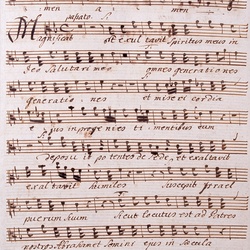 men a men
Magnificat et exultavit Spiritus meus in
Deo Salutari meo omnes generationes
generationes et misericordia
ejus in progenies timentibus eum
Deposuit potentes de sede, et exaltavit
exaltavit humiles suscepit Israel
puerum suum Sicut locutus est ad Patres
nostros Abraham et Semini ejus in Saecula